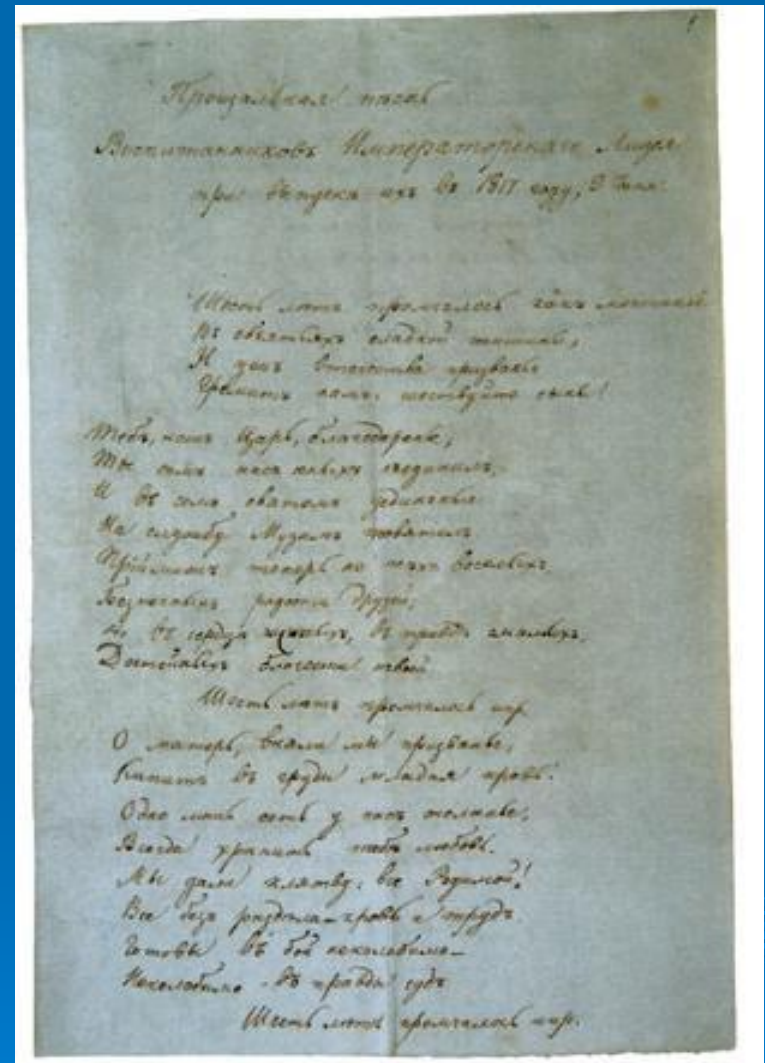 Прощальная пѣснь
Воспитанниковъ Императорскаго Лицея
при выпускѣ ихъ въ 1817 году, 9 Іюня.
Шесть лѣтъ промчалось какъ мечтанье
Въ объятьяхъ сладкой тишины,
И ужъ отечества призванье
Гремитъ намъ: шествуйте сыны!
Тебѣ, нашъ Царь, благодаренье,
Ты самъ насъ юныхъ съединилъ,
И въ семъ святомъ уединеньи
На службу Музамъ посвятилъ
теперь не тѣхъ веселыхъ
радости друзей,
Но въ сердцѣ чистыхъ, въ правдѣ смѣлыхъ,
Достойныхъ благости твоей
Шесть лѣтъ промчалось и пр.
О матерь, вняли мы призванье,
Кипитъ въ груди младая кровь!
Одно лишь есть у насъ желанье,
Всегда хранить любовь.
Мы дали клятву: все Родимой!
Все безъ раздѣла – кровь и трудъ
Готовы въ бой неколебимо –
Неколебимо – въ правды судъ
Шесть лѣтъ промчалось и пр.